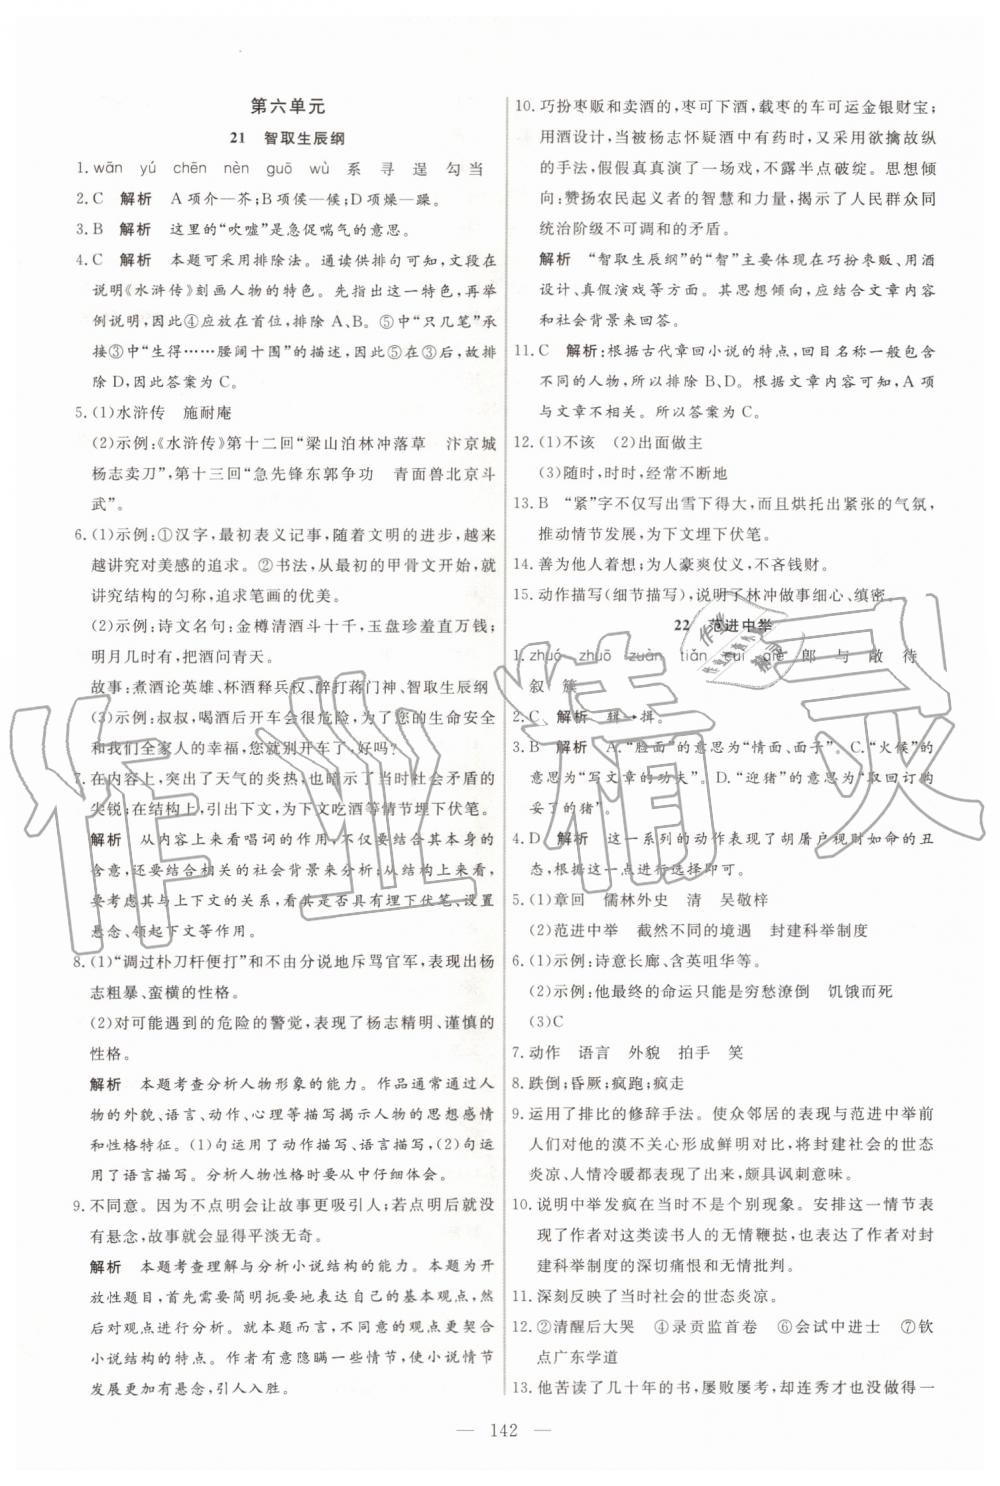 第六单元
21 智取生辰纲
1. wān yú chēn nèn guō wù 系 寻 逞 勾 当
2. C 解析 A项介—芥;B项侯—候;D项燥—躁。
3. B 解析 这里的“吹嘘”是急促喘气的意思。
4. C 解析 本题可采用排除法。通读供排句可知,文段在
说明《水浒传》刻画人物的特色。先指出这一特色,再举
例说明,因此④应放在首位,排除A、B。⑤中“只几笔”承
接③中“生得……腰阔十围”的描述,因此⑤在③后,故排
除D,因此答案为C。
5. (1)水浒传 施耐庵
(2)示例:《水浒传》第十二回“梁山泊林冲落草 汴京城
杨志卖刀”,第十三回“急先锋东郭争功 青面兽北京斗
武”。
6. (1)示例:①汉字,最初表义记事,随着文明的进步,越来
越讲究对美感的追求。②书法,从最初的甲骨文开始,就
讲究结构的匀称,追求笔画的优美。
(2)示例:诗文名句:金樽清酒斗十千,玉盘珍羞直万钱;
明月几时有,把酒问青天。
故事:煮酒论英雄、杯酒释兵权、醉打蒋门神、智取生辰纲
(3)示例:叔叔,喝酒后开车会很危险,为了您的生命安全
和我们全家人的幸福,您就别开车了,好吗?
7. 在内容上,突出了天气的炎热,也暗示了当时社会矛盾的
尖锐;在结构上,引出下文,为下文吃酒等情节埋下伏笔。
解析 从内容上来看唱词的作用,不仅要结合其本身的
含义,还要结合相关的社会背景来分析;从结构上来看,
要考虑其与上下文的关系,看其是否具有埋下伏笔、设置
悬念、领起下文等作用。
8. (1)“调过朴刀杆便打”和不由分说地斥骂官军,表现出杨
志粗暴、蛮横的性格。
(2)对可能遇到的危险的警觉,表现了杨志精明、谨慎的
性格。
解析 本题考查分析人物形象的能力。作品通常通过人
物的外貌、语言、动作、心理等描写来表现人物的思想感情
和性格特征。(1)句运用了动作描写、语言描写,(2)句运
用了语言描写。分析人物性格时要从中仔细体会。
9. 不同意。因为不点明会让故事更吸引人;若点明后就没
有悬念,故事就会显得平淡无奇。
解析 本题考查理解与分析小说结构的能力。本题为开
放性题目,首先需要简明扼要地表达自己的基本观点,然
后对观点进行分析。但要注意的是,表达的观点要符合
小说结构的特点。作者有意隐瞒一些情节,使小说情节
发展更加有悬念,引人入胜。
10. 巧扮枣贩和卖酒的,枣可下酒,载枣的车可运金银财宝;
用酒设计,当被杨志怀疑酒中有药时,又采用欲擒故纵
的手法,假假真真演了一场戏,不露半点破绽。思想倾
向:赞扬农民起义者的智慧和力量,揭示了人民群众同
统治阶级不可调和的矛盾。
解析 “智取生辰纲”的“智”主要体现在巧扮枣贩、用酒
设计、真假演戏等方面。其思想倾向,应结合文章内容
和社会背景来回答。
11. C 解析:根据古代章回小说的特点,回目名称一般包含
不同的人物,所以排除B、D。根据文章内容可知,A项
与文章不相关。所以答案为C。
12. (1)不该 (2)出面做主
(3)随时,时时,经常不断地
13. B “紧”字不仅写出雪下得大,而且烘托出紧张的气氛,
推动情节发展,为下文埋下伏笔。
14. 善为他人着想;为人豪爽仗义,不吝钱财。
15. 动作描写(细节描写),说明了林冲做事细心、缜密。
22 范进中举
1. zhuó zhuō zuàn tiǎn cuì qiè 郎 与 敞 待
叙 簇
2. C 解析 辑→揖。
3. B 解析 A.“脸面”的意思为“情面、面子”。C.“火候”的
意思为“写文章的功夫”。D.“迎猪”的意思为“取回订购
妥了的猪”。
4. D 解析 这一系列的动作表现了胡屠户视财如命的丑
态,根据这一点进行选择即可。
5. (1)章回 儒林外史 清 吴敬梓
(2)范进中举 截然不同的境遇 封建科举制度
6. (1)示例:诗意长廊、含英咀华等。
(2)示例:他最终的命运只能是穷愁潦倒 饥饿而死
(3)C
7. 动作 语言 外貌 拍手 笑
8. 跌倒;昏厥;疯跑;疯走
9. 运用了排比的修辞手法。使众邻居的表现与范进中举前
人们对他的漠不关心形成鲜明对比,将封建社会的世态
炎凉、人情冷暖都表现了出来,颇具讽刺意味。
10. 说明中举发疯在当时不是个别现象。安排这一情节表
现了作者对这类读书人的无情鞭挞,也表现了作者对封
建科举制度的深切痛恨和无情批判。
11. 深刻反映了当时社会的世态炎凉。
12. ②清醒后大哭 ④录贡监首卷 ⑥会试中进士 ⑦钦
点广东学道
13. 他苦读了几十年的书,屡败屡考,却连秀才也没做得一
— 142 —
作业精灵